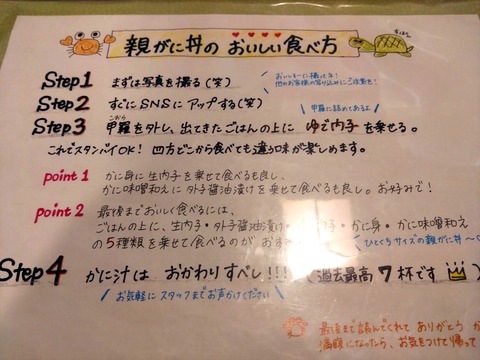 親がに丼の おいしい食べ方
すっぽん
Step1 まずは写真を撮る(笑)
おいしそーに撮ってネ!
他のお客様の写り込みにご注意を!
Step2 すぐにSNSに アップする(笑)
甲羅に詰めてあるよ
Step3 甲羅を外し、出てきたごはんの上に ゆで内子を乗せる。
こうら
これでスタンバイOK! 四方どこから食べても違う味が楽しめます。
point 1 かに身に生内子を乗せて食べるも良し、
かに味噌和えに外子醤油漬けを乗せて食べるも良し。お好みで!
point 2 最後までおいしく食べるには、
ごはんの上に、生内子・外子醤油漬け・ 子・かに身・かに味噌和え
の5種類を乗せて食べるのが おす
ひとくちサイズの親がに丼〜
Step4 かに汁は おかわりすべし!!! (過去最高7杯です
お気軽に スタッフまでお声がけください
最後まで読んでくれて ありがとう か
満腹になったら、お気をつけて帰って